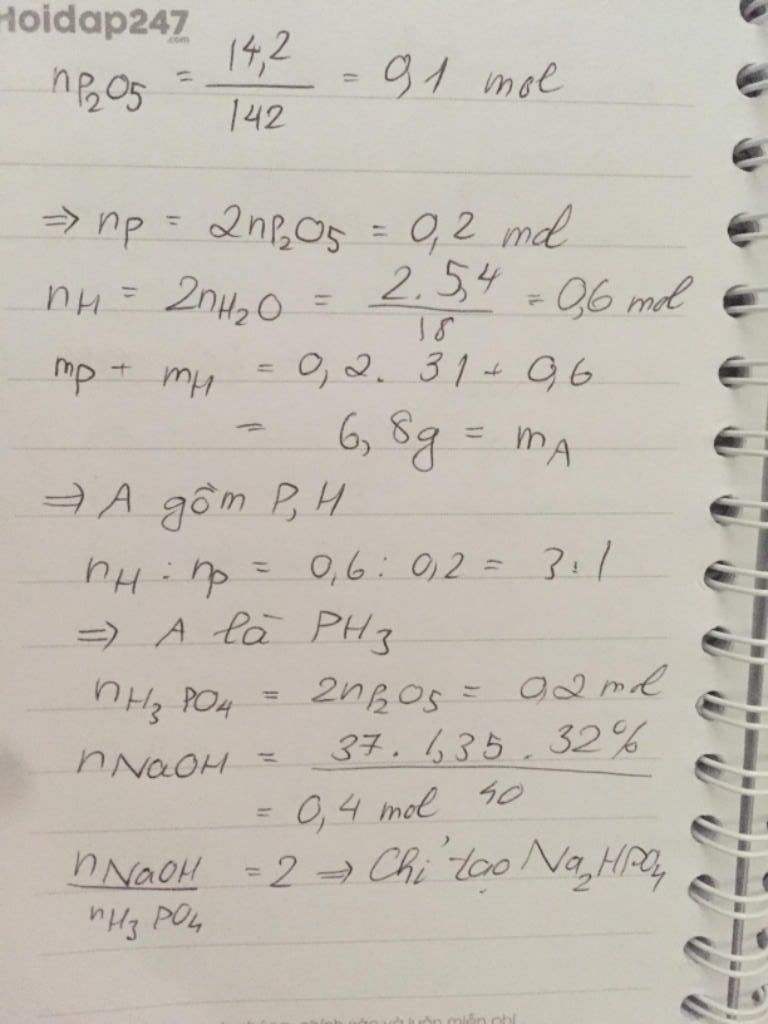 Hoidap247
.com
nP₂O₅ = 14,2 / 142 = 0,1 mol
⇒ nP = 2nP₂O₅ = 0,2 mol
nH = 2nH₂O = 2.5,4 / 18 = 0,6 mol
mP + mH = 0,2. 31 + 0,6
= 6,8g = mA
⇒ A gồm P, H
nH : nP = 0,6 : 0,2 = 3:1
⇒ A là PH₃
nH₃PO₄ = 2nP₂O₅ = 0,2 mol
nNaOH = 37. 1,35. 32% / 40
= 0,4 mol
nNaOH / nH₃PO₄ = 2 ⇒ Chỉ tạo Na₂HPO₄
và luôn miễn phí